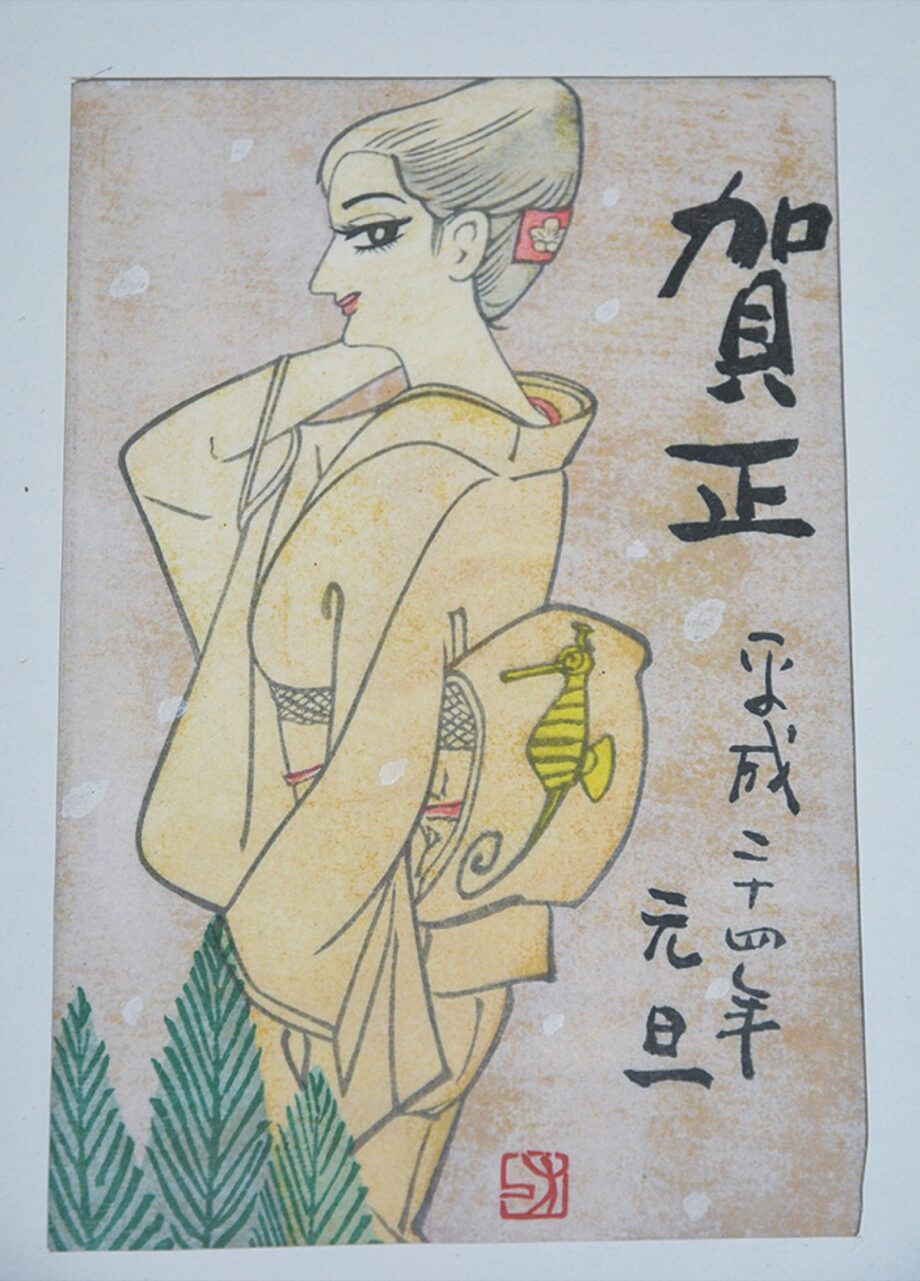 賀正
平成二十四年
元旦